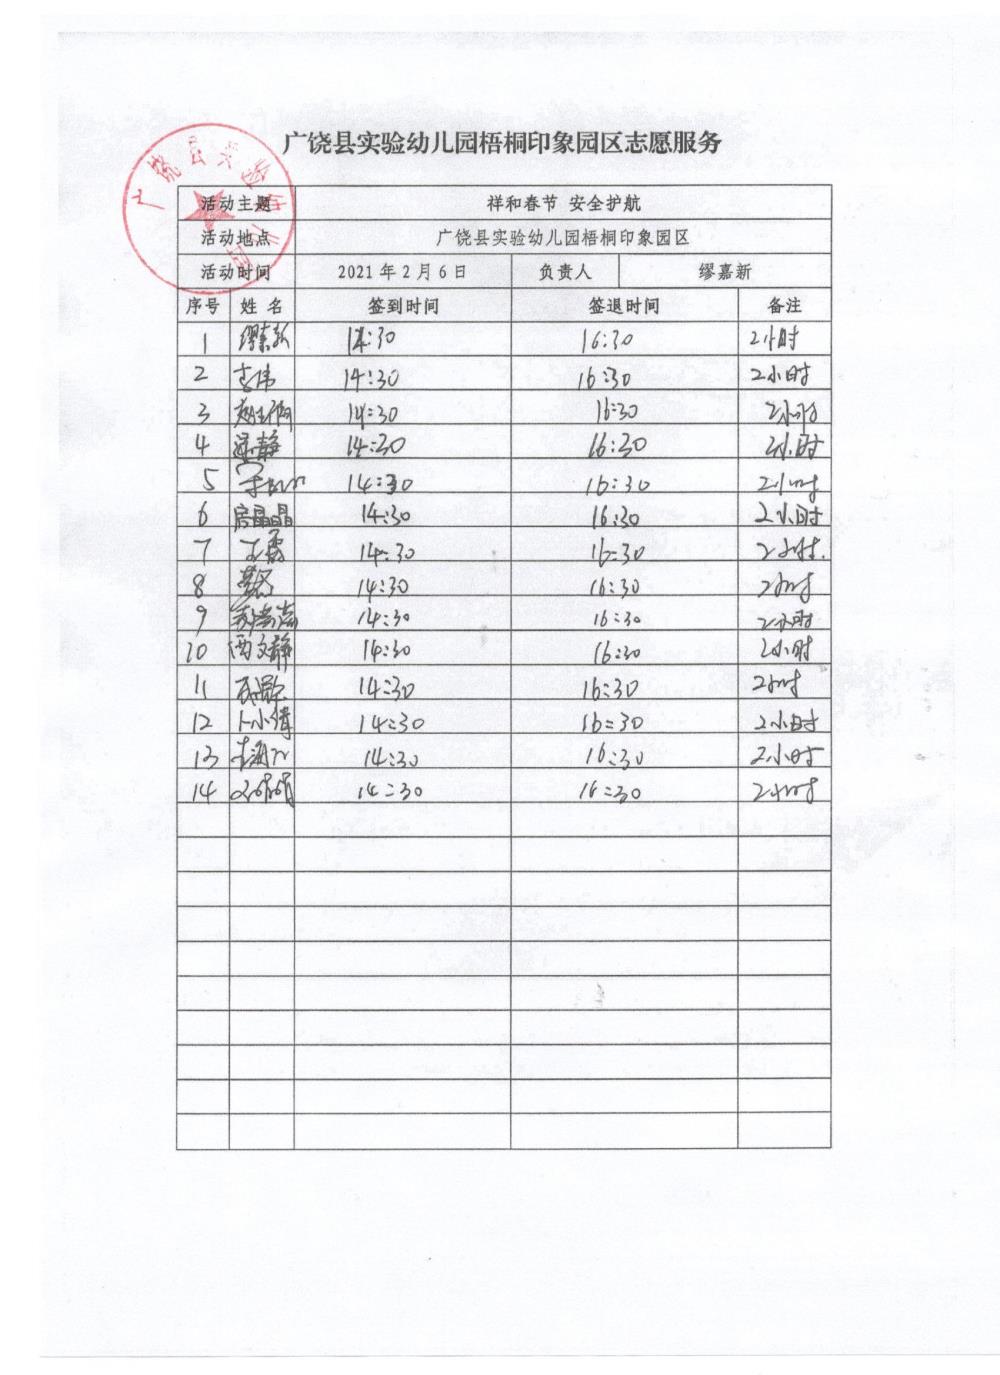 广饶县实验幼儿园梧桐印象园区志愿服务
广饶县实验幼儿园
活动主题 祥和春节 安全护航
活动地点 广饶县实验幼儿园梧桐印象园区
活动时间 2021年2月6日 负责人 缪嘉新
序号 姓名 签到时间 签退时间 备注
1 缪嘉新 14:30 16:30 2小时
2 李伟 14:30 16:30 2小时
3 14:30 16:30 2小时
4 14:30 16:30 2小时
5 14:30 16:30 2小时
6 房晶晶 14:30 16:30 2小时
7 14:30 16:30 2小时.
8 14:30 16:30 2小时
9 14:30 16:30 2小时
10 西文静 14:30 16:30 2小时
11 14:30 16:30 2小时
12 卜小倩 14:30 16:30 2小时
13 14:30 16:30 2小时
14 14:30 16:30 2小时